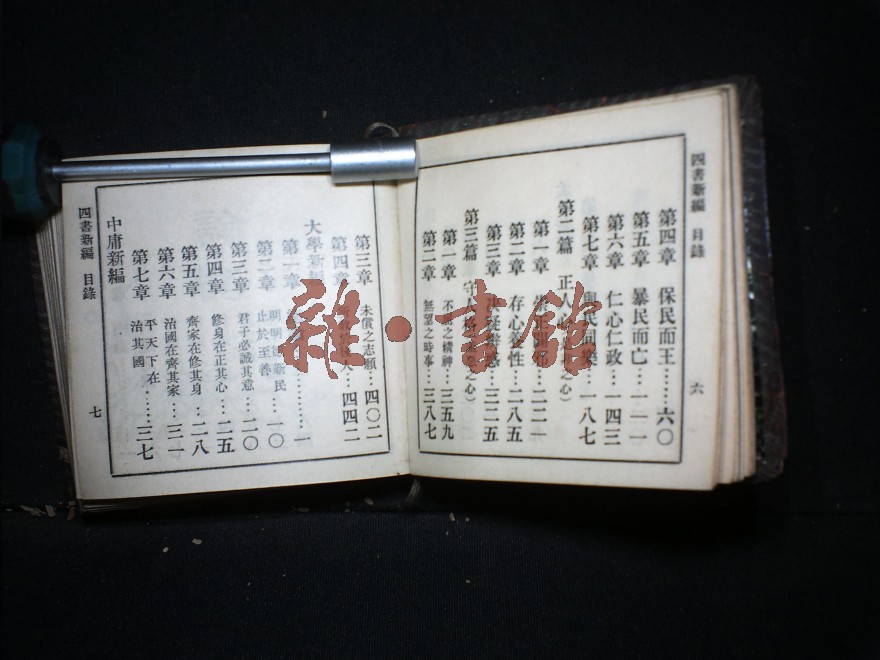 四書新編 目錄
六
第四章 保民而王……六〇
第五章 暴民而亡…一一一
第六章 仁心仁政…一四三
第七章 與民同樂…一八七
第二篇 正人心
之心）
第一章
…二二一
第二章 存心養性…二八五
第三章
…三二五
第三篇 守
之心）
第一章 不
之精神…三五九
第二章 無望之時事…三八七
第三章 未償之志願…四〇二
第四章
人…四四二
大學新編
第一章
…一
第二章 明明德新民
止於至善…一〇
第三章 君子必誠其意…二〇
第四章 修身在正其心…二五
第五章 齊家在修其身…二八
第六章 治國在齊其家…三一
第七章 平天下在
治其國……三七
中庸新編
四書新編 目錄
七
雜·書館